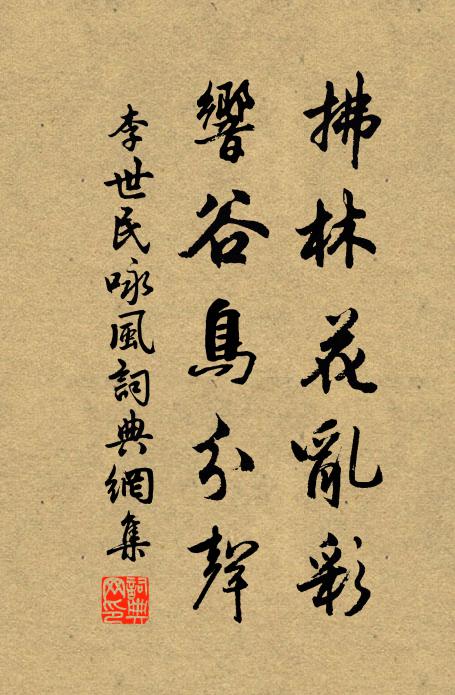 拂林花亂彩
響谷鳥分聲
李世民咏風詞典網集
詞典網印